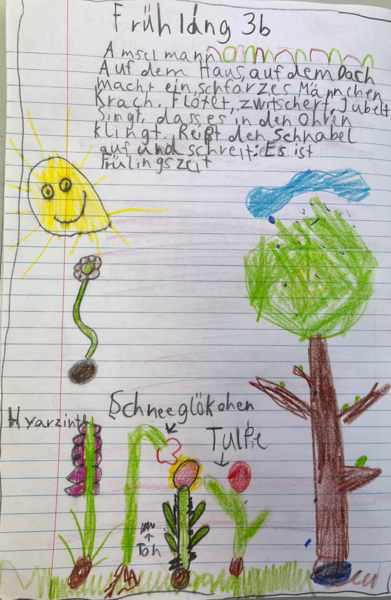 Frühlang 3b
Amselmann
Auf dem Haus, auf dem Dach
macht ein schfarzes Männchen
Krach. Flötet, zwitschert, jubelt
Singt, dass es in den Ohren
klingt. Reißt den Schnabel
auf und schreit: Es ist
Frülingszeit
Schneeglökchen
Hyarzinth
Tulpe